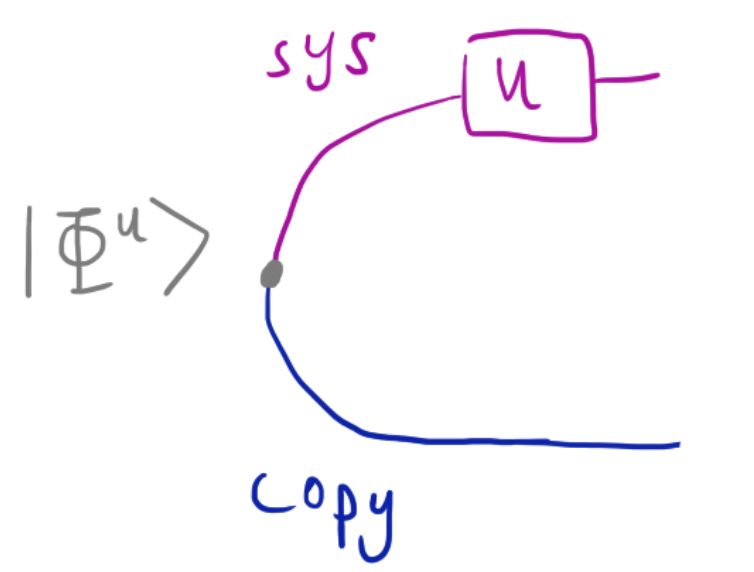 sys
u
|Φᵘ⟩
copy